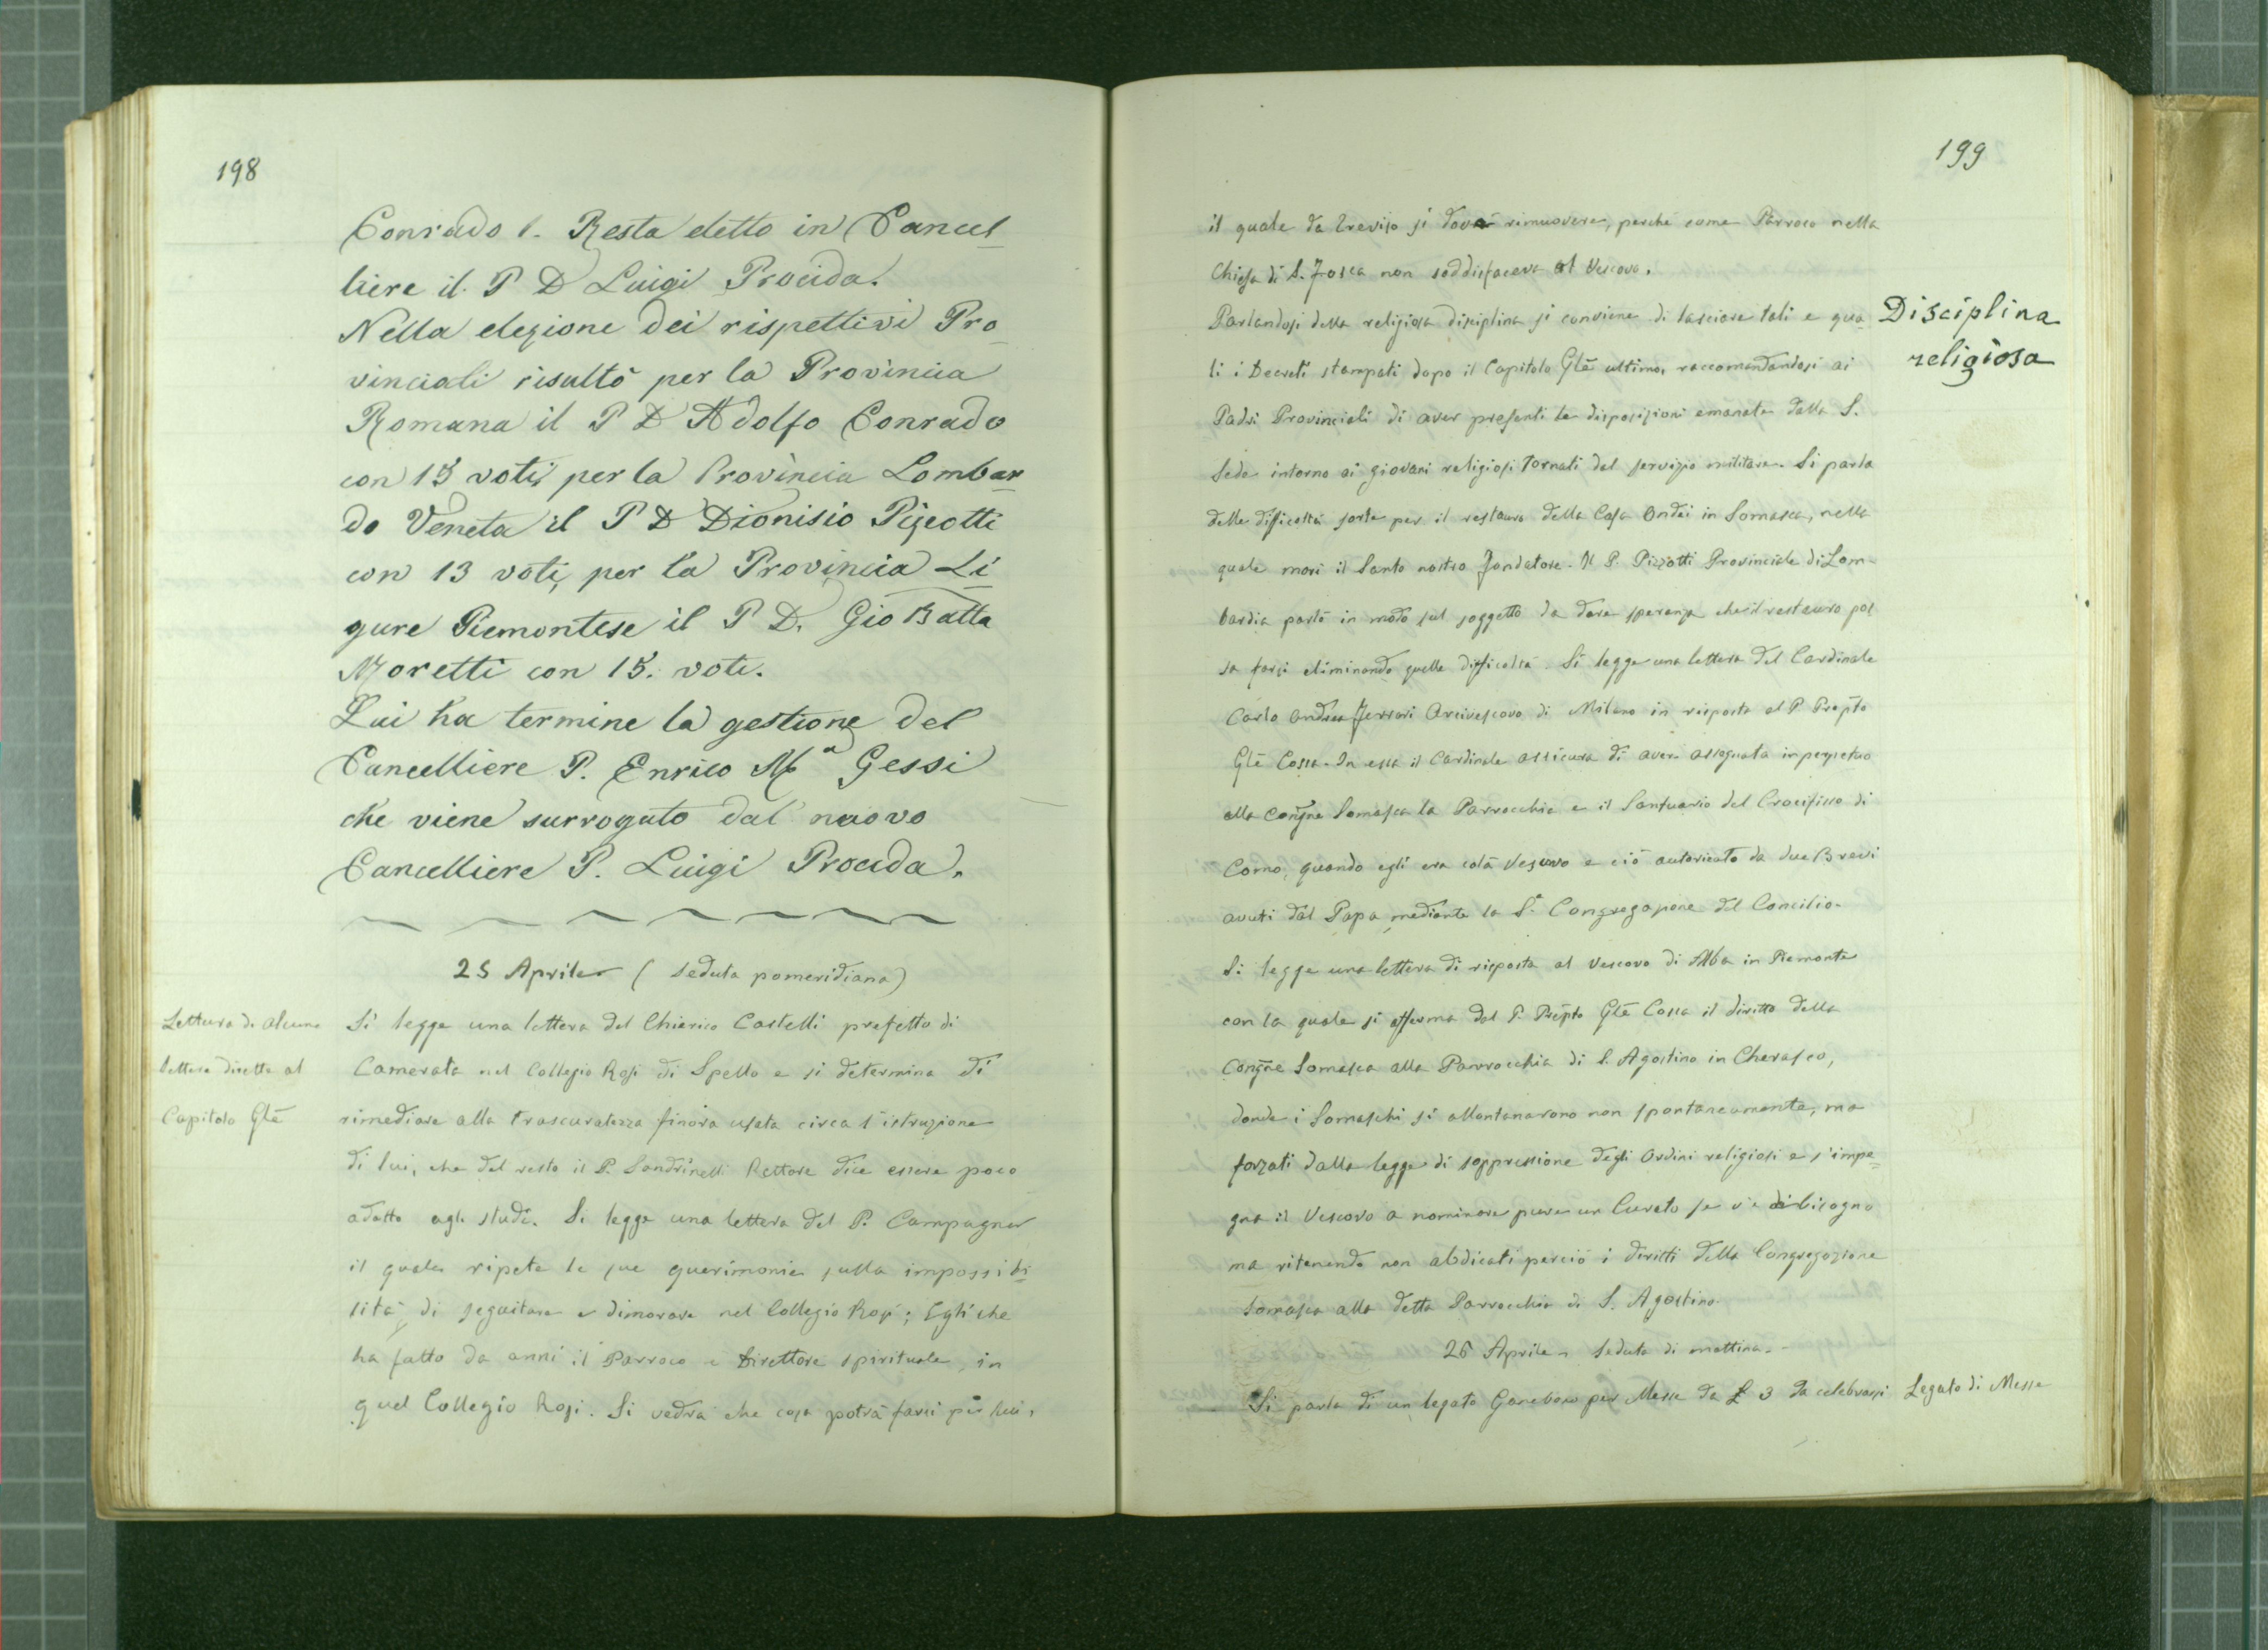 198
Conrado 1. Resta eletto in Cancel
liere il P D Luigi Procida.
Nella elezione dei rispettivi Pro
vinciali risultò per la Provincia
Romana il P D Adolfo Conrado
con 15 voti, per la Provincia Lombar
do Veneta il P D Dionisio Pizzotti
con 13 voti, per la Provincia Li
gure Piemontese il P D. Gio Batta
Moretti con 15. voti.
Qui ha termine la gestione del
Cancelliere P. Enrico Mª Gessi
che viene surrogato dal nuovo
Cancelliere P. Luigi Procida.
25 Aprile (seduta pomeridiana)
Lettura di alcune
lettere dirette al
Capitolo Glē
Si legge una lettera del Chierico Castelli prefetto di
Camerata nel Collegio Rosi di Spello e si determina di
rimediare alla trascuratezza finora usata circa l'istruzione
di lui, che del resto il P. Sandrinelli Rettore dice essere poco
adatto agli studi. Si legge una lettera del P. Campagner
il quale ripete le sue querimonie sulla impossibi
lità di seguitare a dimorare nel Collegio Rosi; Egli che
ha fatto da anni il Parroco e Direttore spirituale in
quel Collegio Rosi. Si vedrà che cosa potrà farsi per lui,
199
il quale da Treviso si dové rimuovere, perché come Parroco nella
Chiesa di S. Fosca non soddisfaceva al Vescovo.
Disciplina
religiosa
Parlandosi della religiosa disciplina si conviene di lasciare tali e qua
li i Decreti stampati dopo il Capitolo Glē ultimo, raccomandandosi ai
Padri Provinciali di aver presenti le disposizioni emanate dalla S.
Sede intorno ai giovani religiosi tornati dal servizio militare. Si parla
delle difficoltà sorte per il restauro della Casa Ondei in Somasca, nella
quale morì il Santo nostro Fondatore. Il P. Pizzotti Provinciale di Lom-
bardia parlò in modo sul soggetto da dare speranza che il restauro pos
sa farsi eliminando quelle difficoltà. Si legge una lettera del Cardinale
Carlo Andrea Ferrari Arcivescovo di Milano in risposta al P. Prepto
Glē Cossa. In essa il Cardinale assicura di aver assegnata in perpetuo
alla Congne Somasca la Parrocchia e il Santuario del Crocifisso di
Como, quando egli era colà Vescovo e ciò autorizzato da due Brevi
avuti dal Papa mediante la S. Congregazione del Concilio.
Si legge una lettera di risposta al Vescovo di Alba in Piemonte
con la quale si afferma dal P. Prepto Glē Cossa il diritto della
Congne Somasca alla Parrocchia di S. Agostino in Cherasco,
donde i Somaschi si allontanarono non spontaneamente, ma
forzati dalla legge di soppressione degli Ordini religiosi e s'impe
gna il Vescovo a nominare pure un Curato se v'è di bisogno
ma ritenendo non abdicati perciò i diritti della Congregazione
Somasca alla detta Parrocchia di S. Agostino.
26 Aprile. Seduta di mattina.
Si parla di un legato per Messe da £ 3 da celebrarsi
Legato di Messe